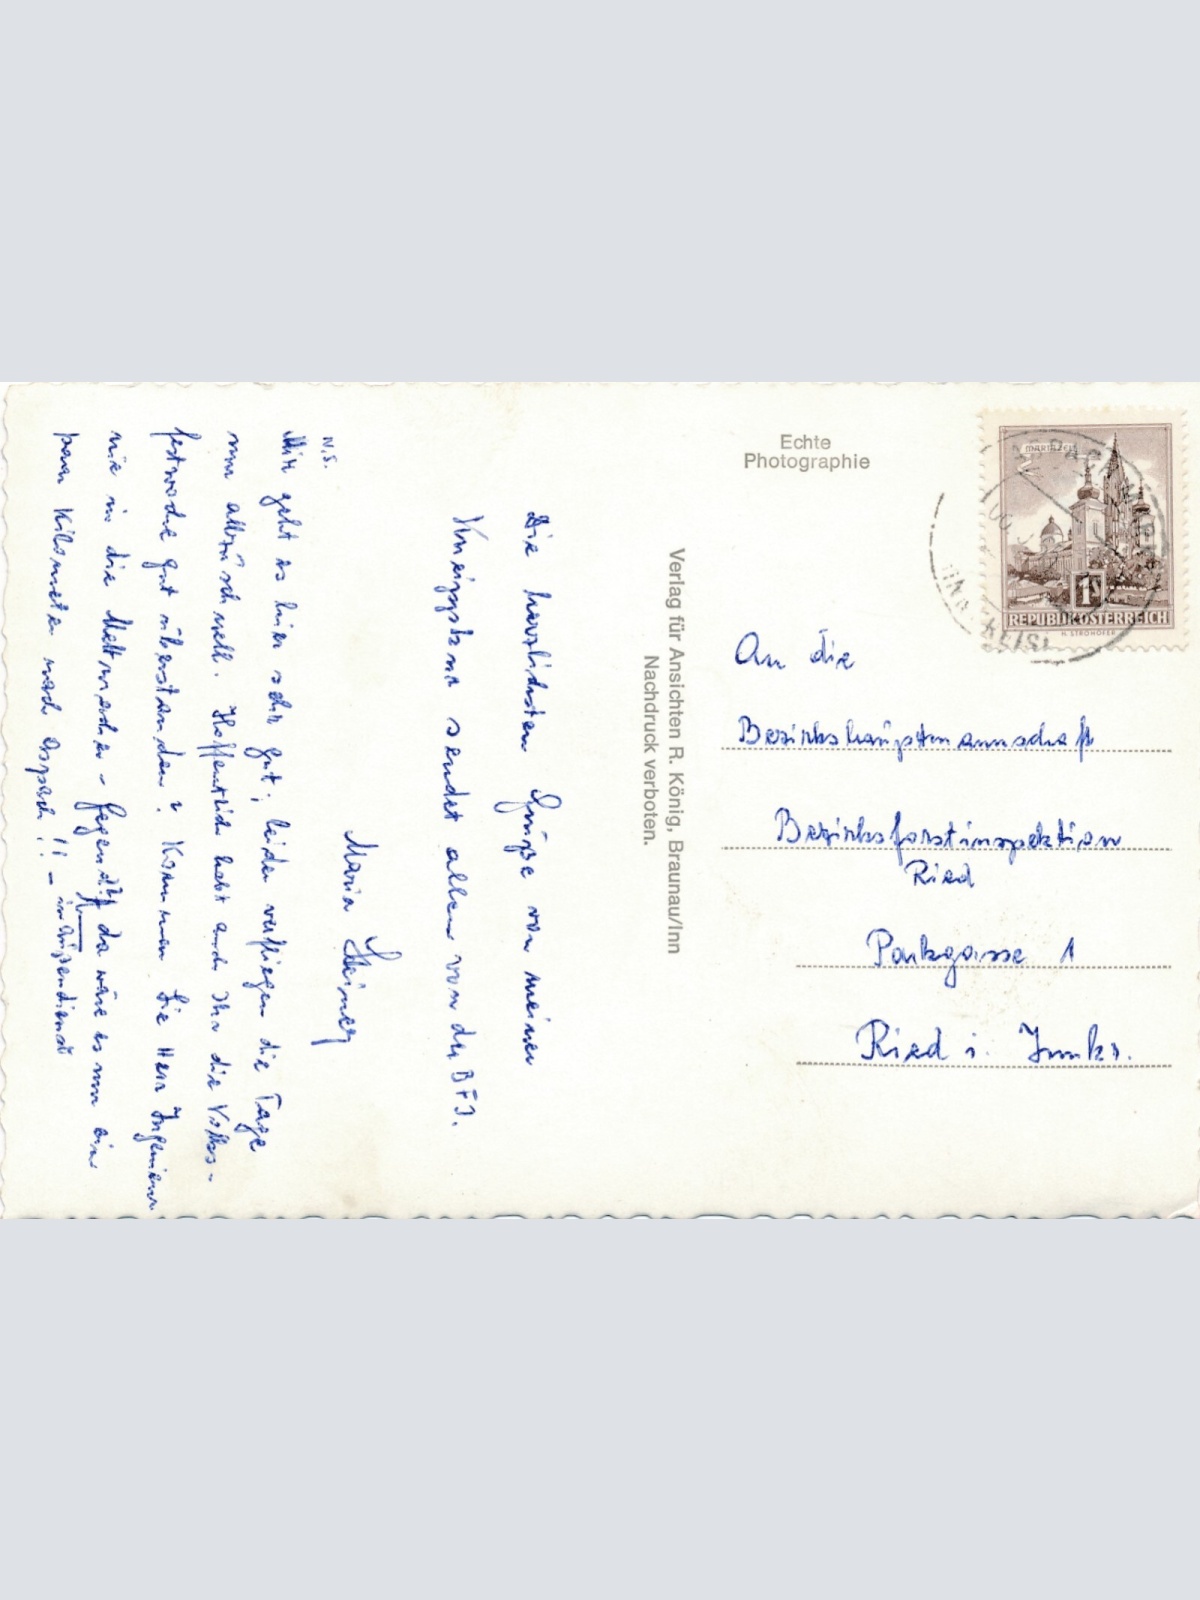 Die herzlichsten Grüße von meiner
Kneippkur sendet allen von der BFI.
Maria
N.S.
Mir geht es hier sehr gut; leider verfliegen die Tage
nur allzu schnell. Hoffentlich habt auch Ihr die Volks-
festwoche gut überstanden? Kommen Sie Herr Ingenieur
nie in die Mettmacher-Gegend? da wäre es nur ein
paar Kilometer nach Aspach!! -
Echte
Photographie
Verlag für Ansichten R. König, Braunau/Inn
Nachdruck verboten.
MARIAZELL
1S
REPUBLIK ÖSTERREICH
H. STROHOFER
An die
Bezirkshauptmannschaft
Bezirksforstinspektion
Ried
Parkgasse 1
Ried i. Innkr.